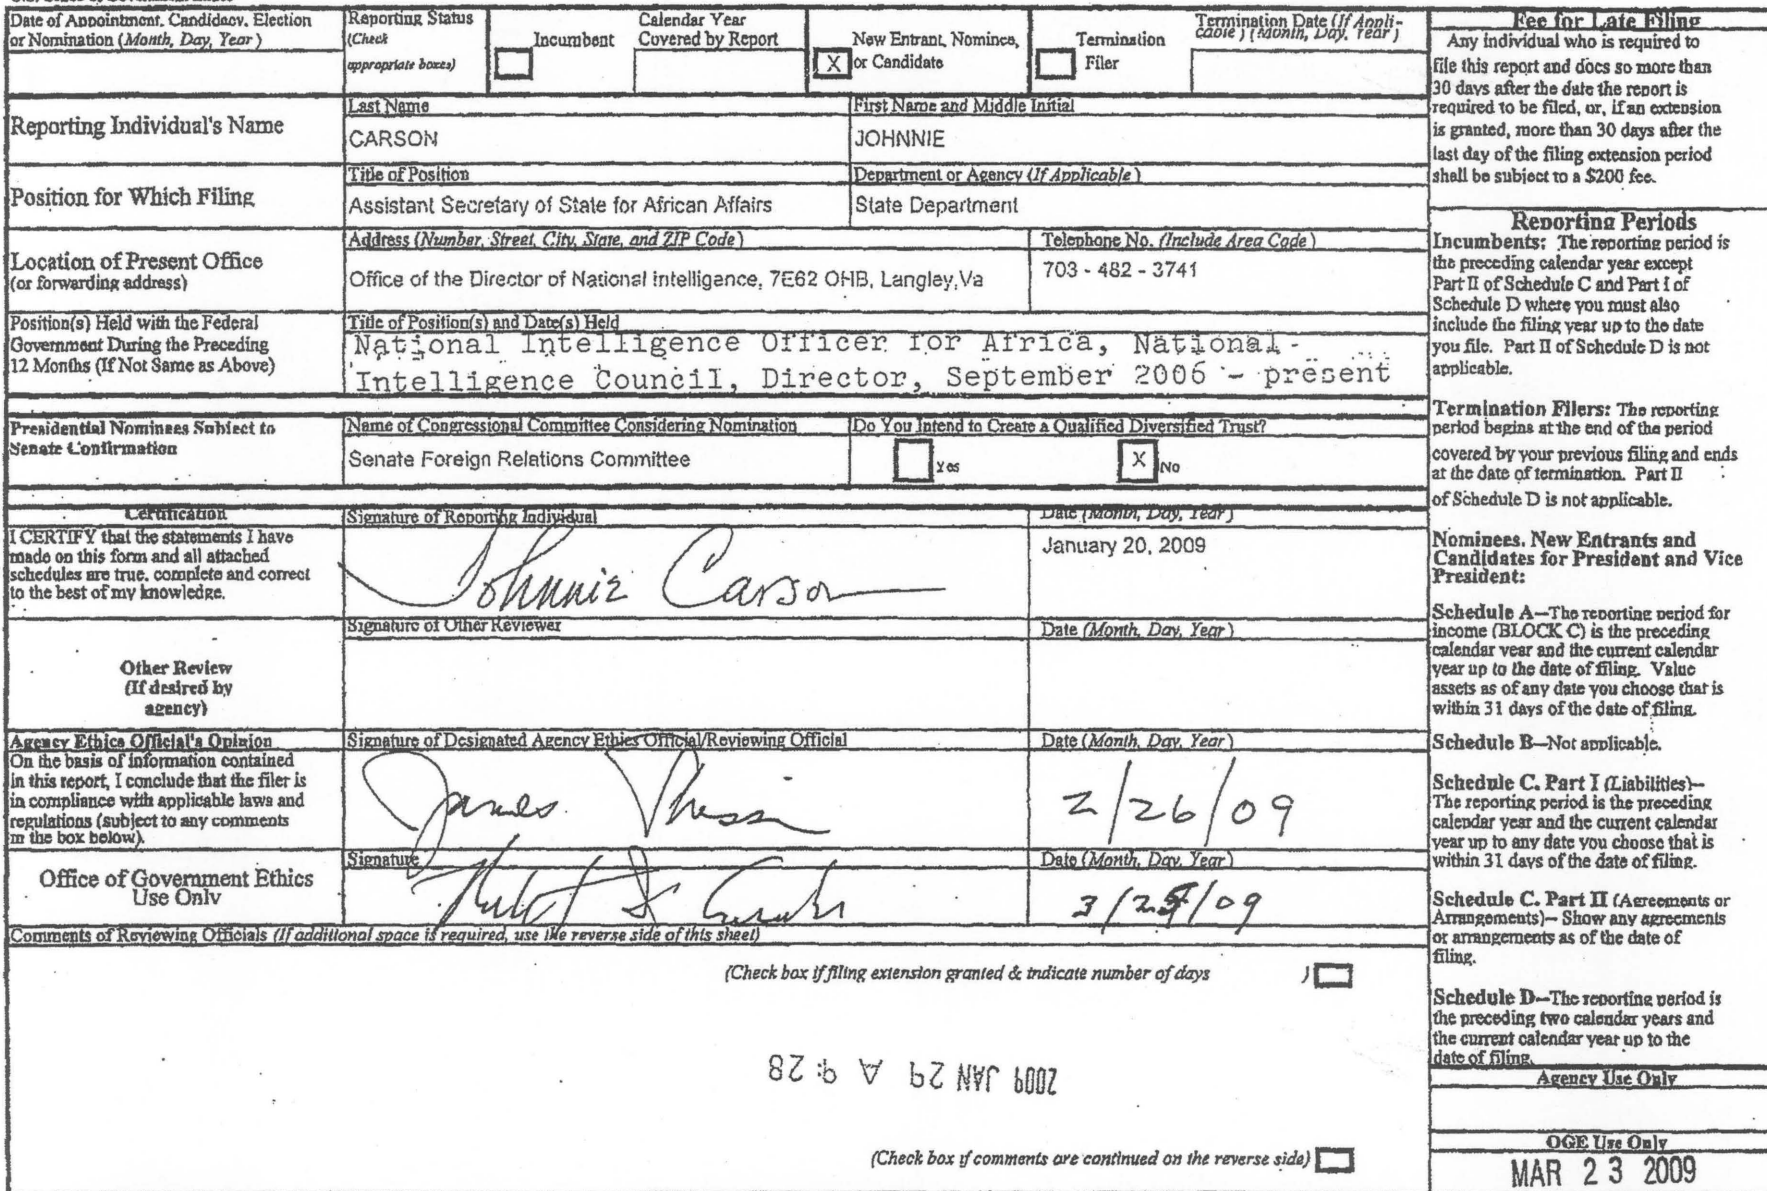 Date of Appointment, Candidacy, Election
or Nomination (Month, Day, Year)
Reporting Status
(Check
appropriate boxes)
Incumbent
Calendar Year
Covered by Report
X
New Entrant, Nominee,
or Candidate
Termination
Filer
Termination Date (If Appli-
cable) (Month, Day, Year)
Reporting Individual's Name
Last Name
CARSON
First Name and Middle Initial
JOHNNIE
Position for Which Filing
Title of Position
Assistant Secretary of State for African Affairs
Department or Agency (If Applicable)
State Department
Location of Present Office
(or forwarding address)
Address (Number, Street, City, State, and ZIP Code)
Office of the Director of National Intelligence, 7E62 OHB, Langley,Va
Telephone No. (Include Area Code)
703 - 482 - 3741
Position(s) Held with the Federal
Government During the Preceding
12 Months (If Not Same as Above)
Title of Position(s) and Date(s) Held
National Intelligence Officer for Africa, National
Intelligence Council, Director, September 2006 - present
Presidential Nominees Subject to
Senate Confirmation
Name of Congressional Committee Considering Nomination
Senate Foreign Relations Committee
Do You Intend to Create a Qualified Diversified Trust?
Yes
X No
Certification
I CERTIFY that the statements I have
made on this form and all attached
schedules are true, complete and correct
to the best of my knowledge.
Signature of Reporting Individual
Johnnie Carson
Date (Month, Day, Year)
January 20, 2009
Other Review
(If desired by
agency)
Signature of Other Reviewer
Date (Month, Day, Year)
Agency Ethics Official's Opinion
On the basis of information contained
in this report, I conclude that the filer is
in compliance with applicable laws and
regulations (subject to any comments
in the box below).
Signature of Designated Agency Ethics Official/Reviewing Official
James
Date (Month, Day, Year)
2/26/09
Office of Government Ethics
Use Only
Signature
Date (Month, Day, Year)
Comments of Reviewing Officials (If additional space is required, use the reverse side of this sheet)
(Check box if filing extension granted & indicate number of days )
2009 JAN 29 A 9:28
(Check box if comments are continued on the reverse side)
Fee for Late Filing
Any individual who is required to
file this report and does so more than
30 days after the date the report is
required to be filed, or, if an extension
is granted, more than 30 days after the
last day of the filing extension period
shall be subject to a $200 fee.
Reporting Periods
Incumbents: The reporting period is
the preceding calendar year except
Part II of Schedule C and Part I of
Schedule D where you must also
include the filing year up to the date
you file. Part II of Schedule D is not
applicable.
Termination Filers: The reporting
period begins at the end of the period
covered by your previous filing and ends
at the date of termination. Part II
of Schedule D is not applicable.
Nominees, New Entrants and
Candidates for President and Vice
President:
Schedule A--The reporting period for
income (BLOCK C) is the preceding
calendar year and the current calendar
year up to the date of filing. Value
assets as of any date you choose that is
within 31 days of the date of filing.
Schedule B--Not applicable.
Schedule C, Part I (Liabilities)--
The reporting period is the preceding
calendar year and the current calendar
year up to any date you choose that is
within 31 days of the date of filing.
Schedule C, Part II (Agreements or
Arrangements)-- Show any agreements
or arrangements as of the date of
filing.
Schedule D--The reporting period is
the preceding two calendar years and
the current calendar year up to the
date of filing.
Agency Use Only
OGE Use Only
MAR 23 2009